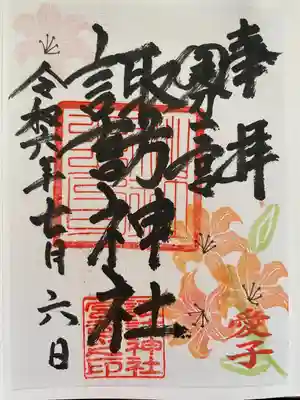 奉拝
夏詣
諏訪神社
令和六年七月六日
愛子